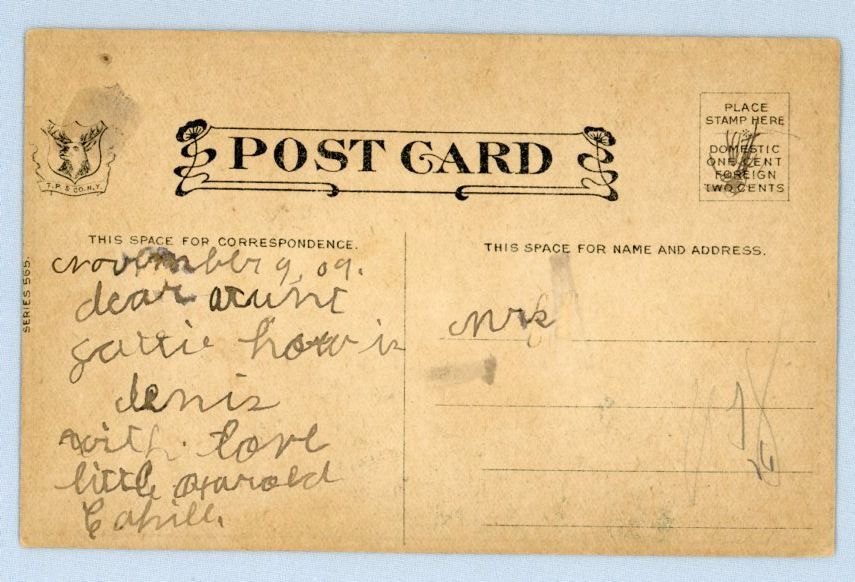 POST CARD
T. P. & CO. N.Y.
PLACE
STAMP HERE
DOMESTIC
ONE CENT
FOREIGN
TWO CENTS
SERIES 565.
THIS SPACE FOR CORRESPONDENCE.
November 9, 09.
dear aunt
how is
denis
with love
little Harold
Cahill.
THIS SPACE FOR NAME AND ADDRESS.
Mrs